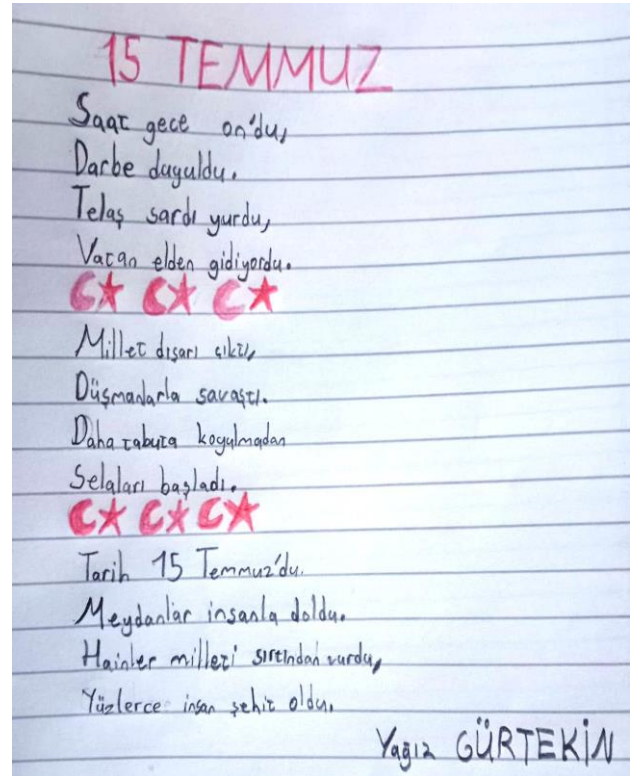 15 TEMMUZ
Saat gece on'du,
Darbe duyuldu.
Telaş sardı yurdu,
Vatan elden gidiyordu.
Millet dışarı çıktı,
Düşmanlarla savaştı.
Daha tabuta koyulmadan
Selaları başladı.
Tarih 15 Temmuz'du.
Meydanlar insanla doldu.
Hainler milleti sırtından vurdu,
Yüzlerce insan şehit oldu.
Yağız GÜRTEKİN